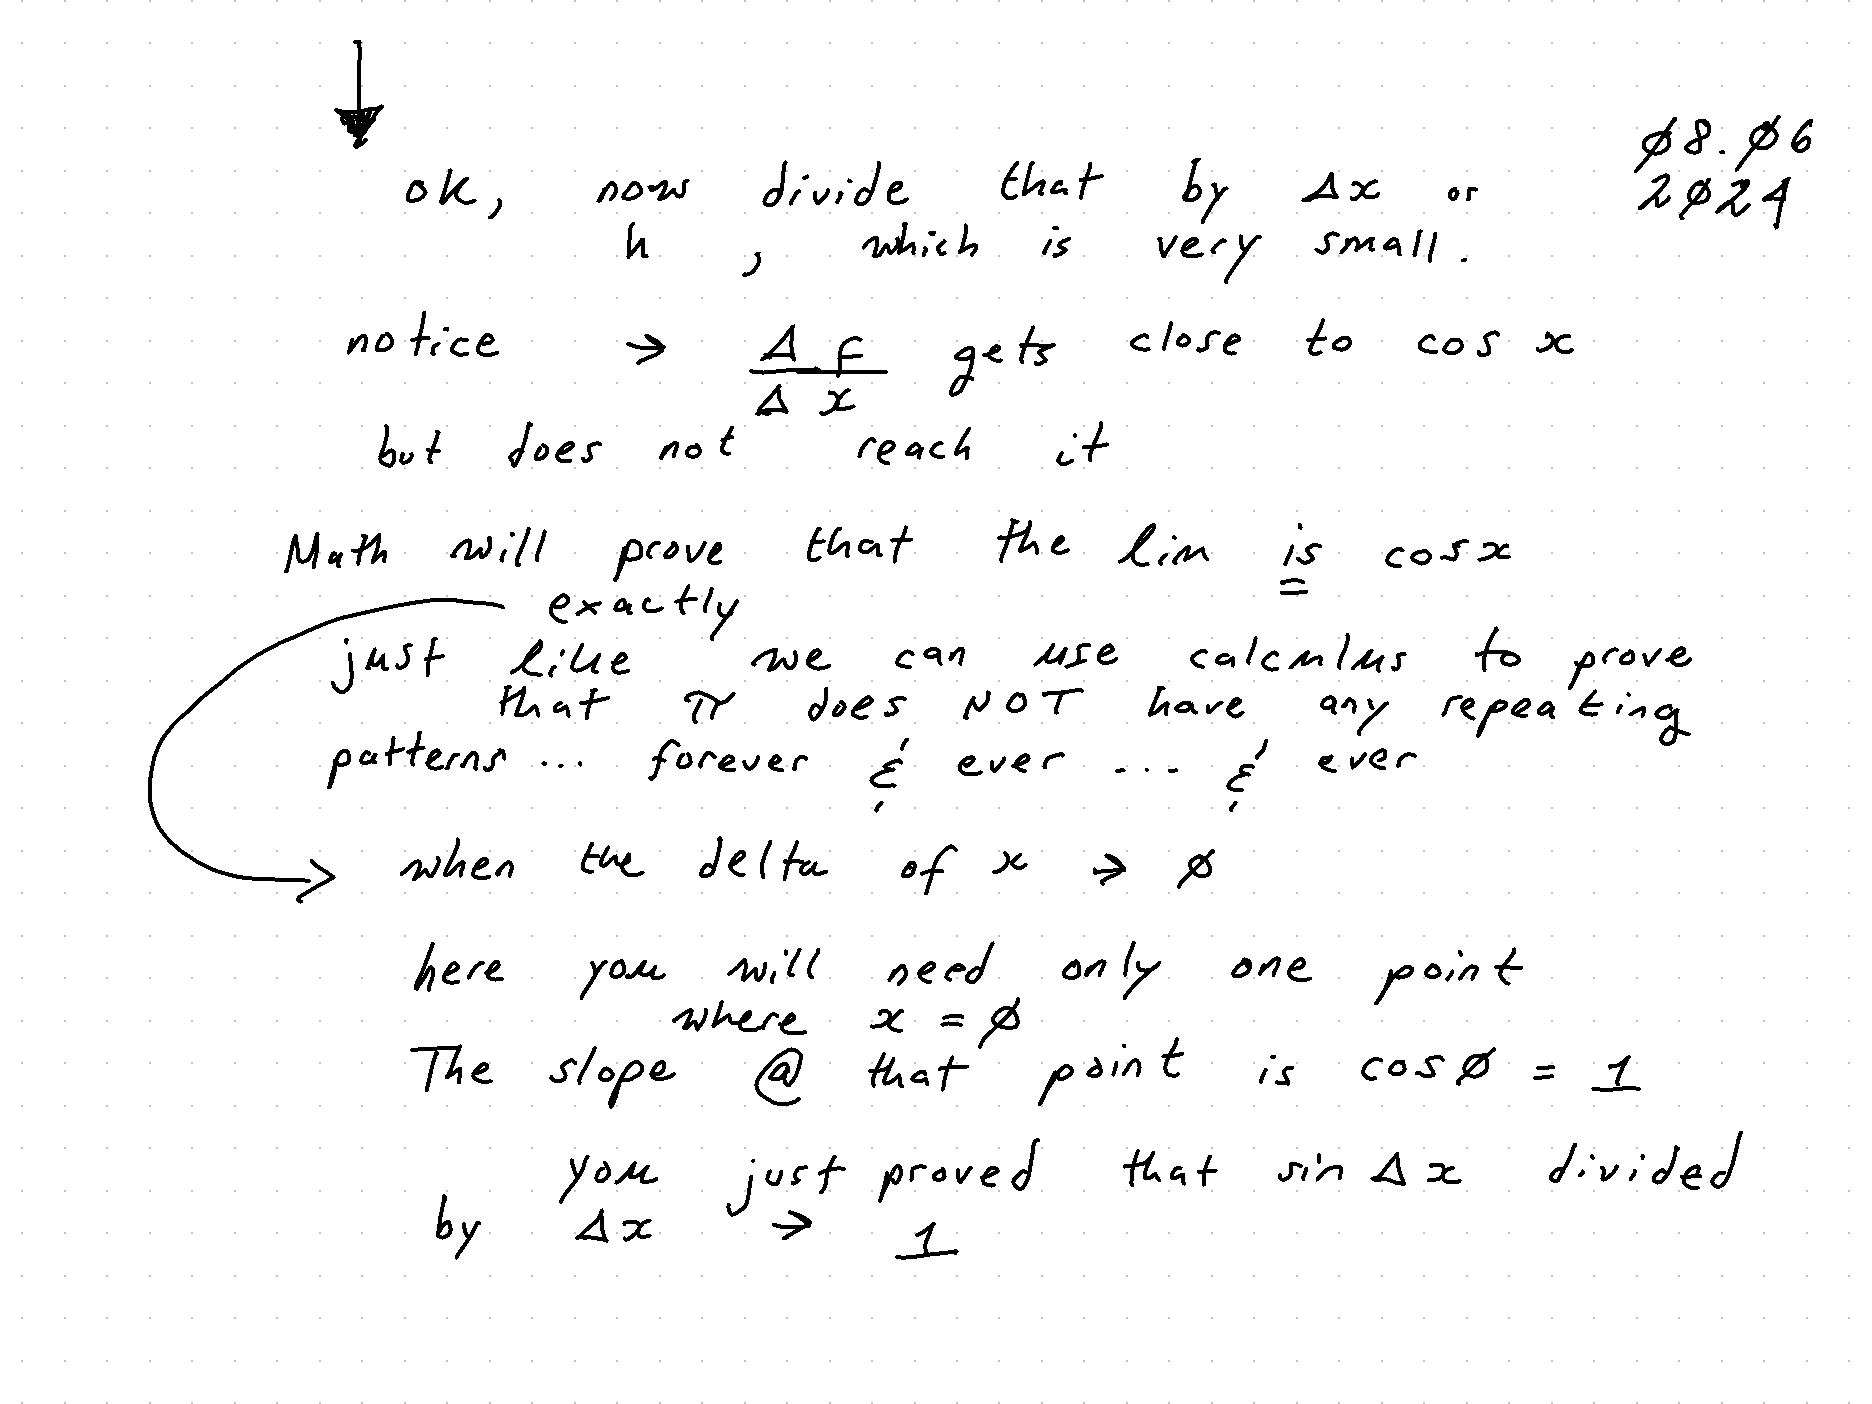 ok, now divide that by Δx or
h , which is very small.
08.06
2024
notice → Δf gets close to cos x
Δx
but does not reach it
Math will prove that the lim is cos x
exactly
just like we can use calculus to prove
that π does NOT have any repeating
patterns ... forever & ever ... & ever
when the delta of x → 0
here you will need only one point
where x = 0
The slope @ that point is cos 0 = 1
you just proved that sin Δx divided
by Δx → 1